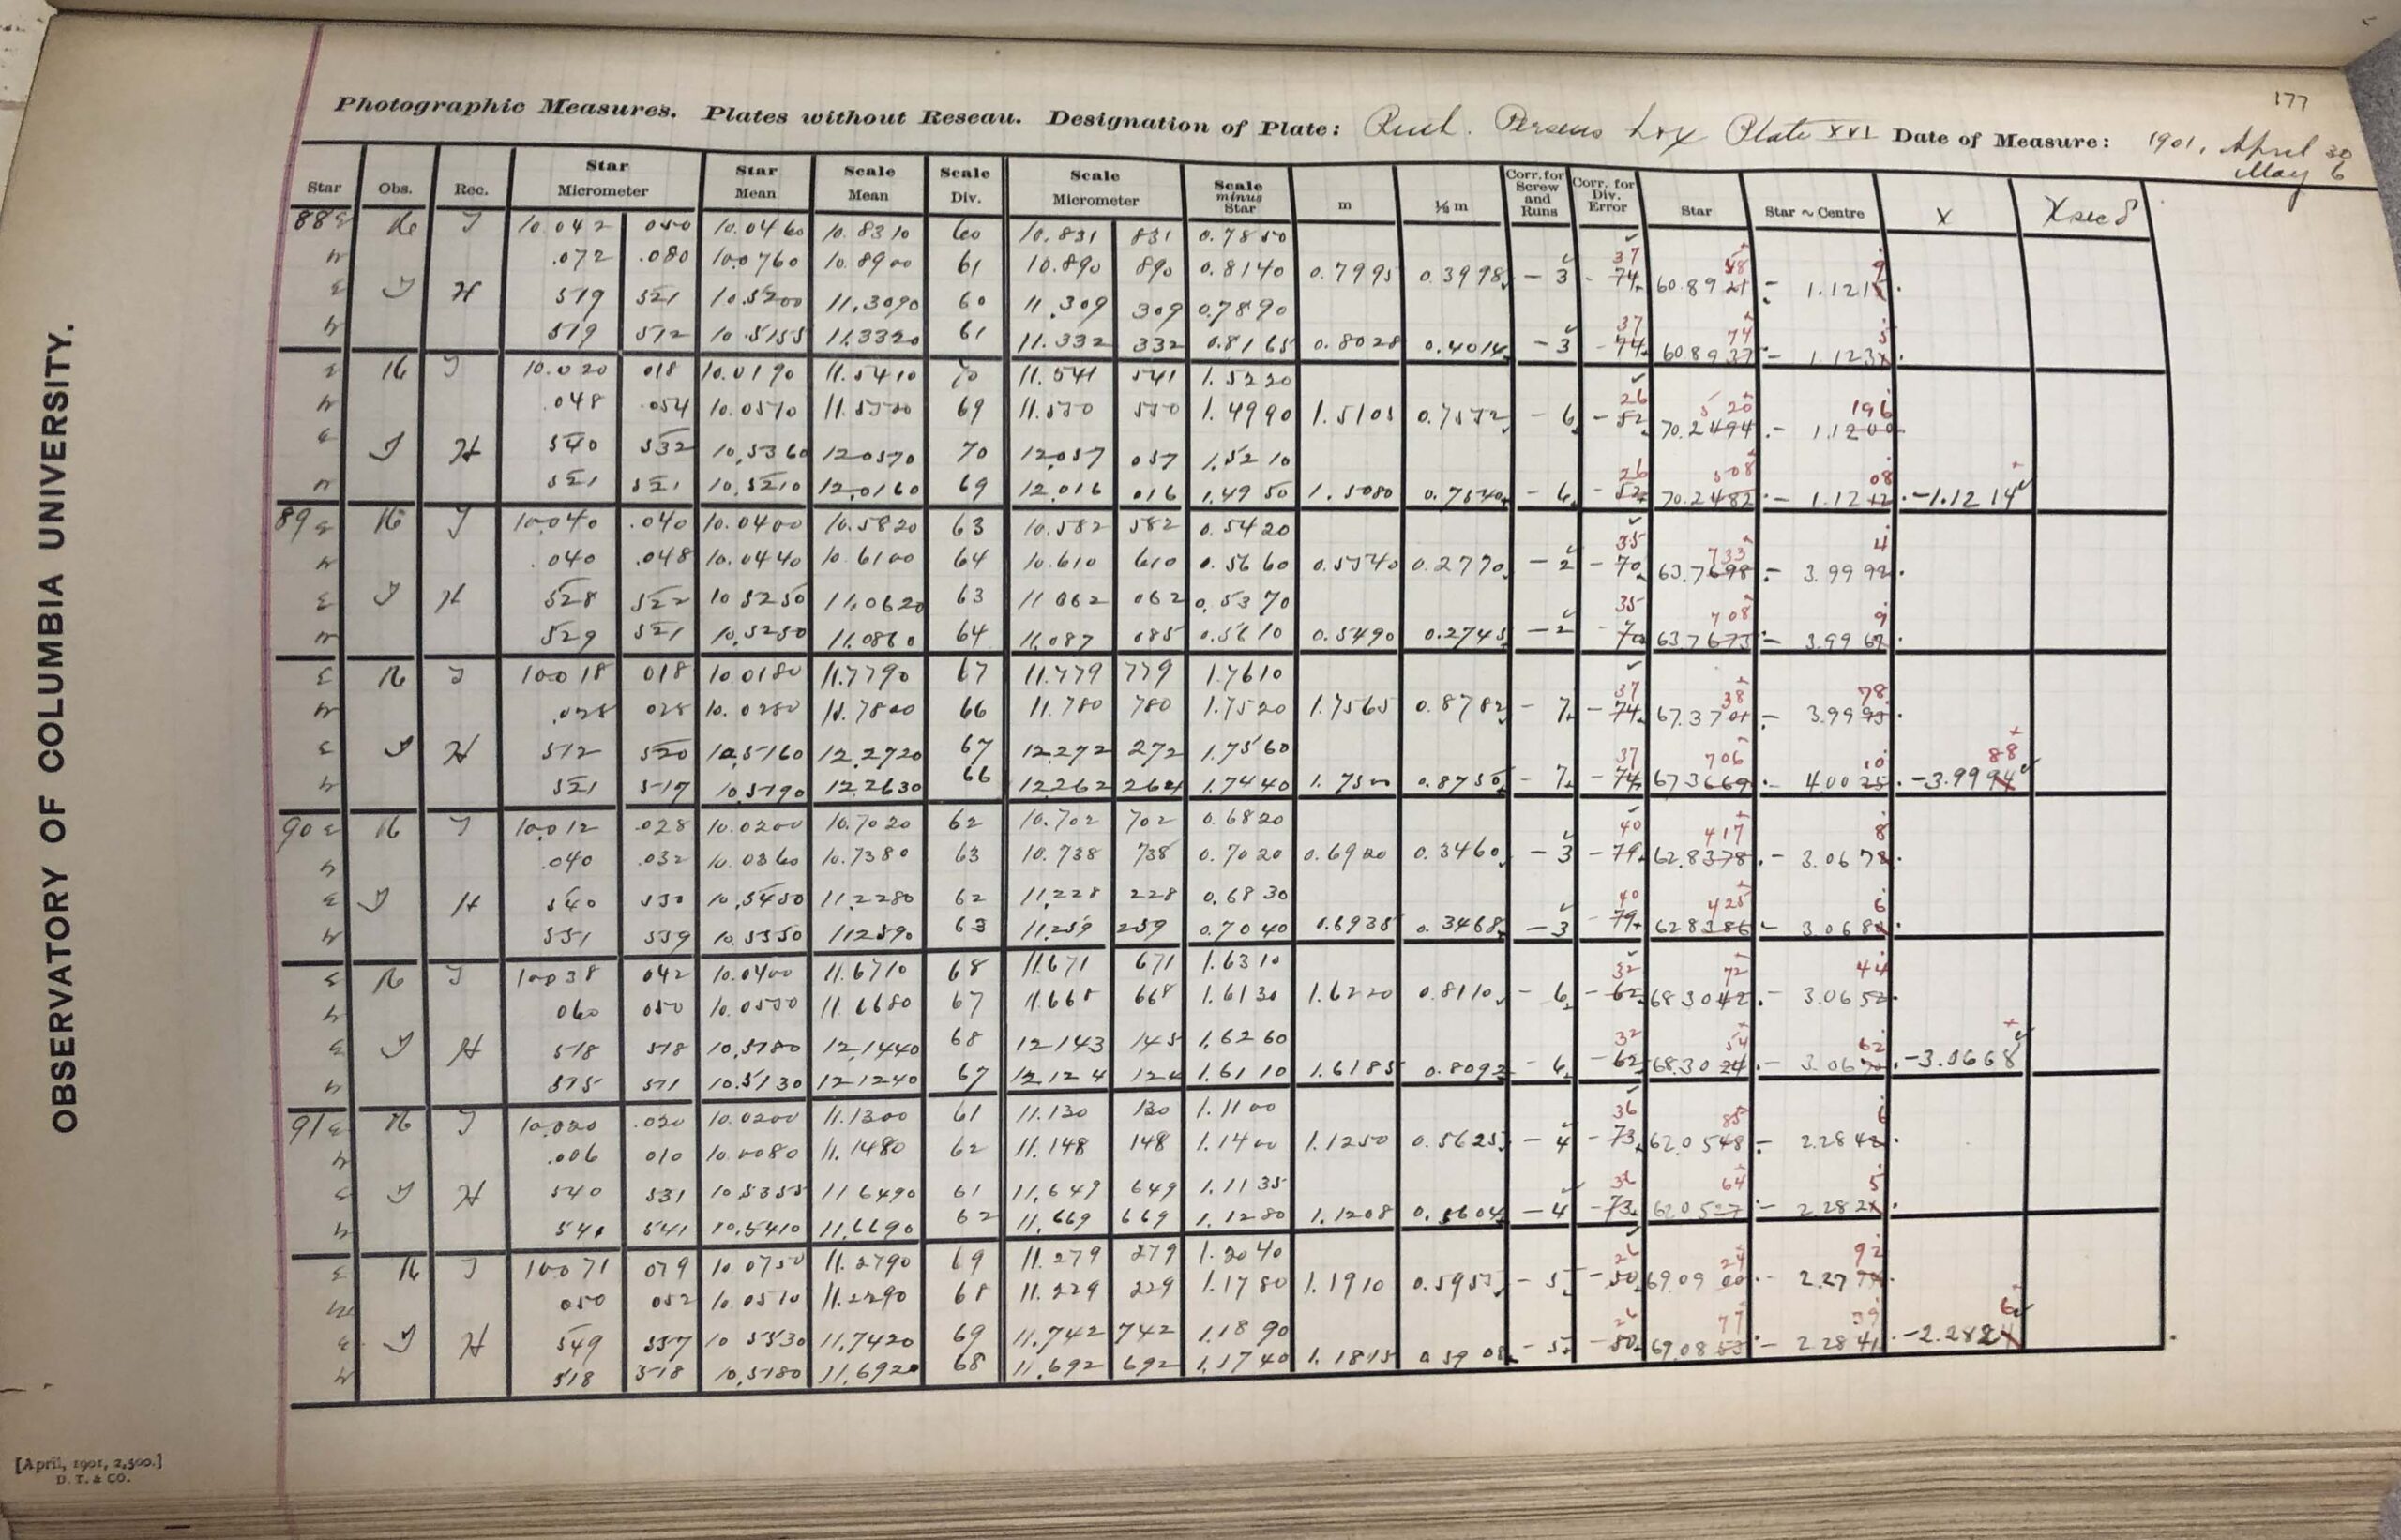 177
Photographic Measures. Plates without Reseau. Designation of Plate: Perseus Plate XVI Date of Measure: 1901, April 30
May 6
Star Obs. Rec. Star Micrometer Star Mean Scale Mean Scale Div. Scale Micrometer Scale minus Star m ½ m Corr. for Screw and Runs Corr. for Div. Error Star Star ~ Centre X X sec δ
88 10.042 050 10.0460 10.8310 60 10.831 831 0.7850
.072 .080 10.0760 10.8900 61 10.890 890 0.8140 0.7995 0.3998 - 3 - 74 37 60.89 - 1.121 9
H 519 521 10.5200 11.3090 60 11.309 309 0.7890
519 512 10.5155 11.3320 61 11.332 332 0.8165 0.8028 0.4014 - 3 - 74 37 60.8937 74 - 1.123 5
10.020 018 10.0190 11.5410 70 11.541 541 1.5220
.048 .054 10.0510 11.5500 69 11.550 550 1.4990 1.5105 0.7552 - 6 - 52 26 70.2494 520 - 1.1200 196
H 540 532 10.5360 12.0570 70 12.057 057 1.5210
521 521 10.5210 12.0160 69 12.016 016 1.4950 1.5080 0.7540 - 6 - 52 26 70.2482 508 - 1.1212 08 -1.1214
89 10.040 .040 10.0400 10.5820 63 10.582 582 0.5420
.040 .048 10.0440 10.6100 64 10.610 610 0.5660 0.5540 0.2770 - 2 - 70 35 63.7698 733 - 3.999 4
H 528 522 10.5250 11.0620 63 11.062 062 0.5370
529 521 10.5250 11.0860 64 11.087 085 0.5610 0.5490 0.2745 - 2 - 70 35 63.7673 708 - 3.996 9
10.018 018 10.0180 11.7790 67 11.779 779 1.7610
.028 028 10.0280 11.7800 66 11.780 780 1.7520 1.7565 0.8782 - 7 - 74 37 67.3701 38 - 3.9995 78
H 512 520 10.5160 12.2720 67 12.272 272 1.7560
521 517 10.5190 12.2630 66 12.262 264 1.7440 1.7500 0.8750 - 7 - 74 37 67.3669 706 - 4.0025 10 -3.9994 88
90 10.012 .028 10.0200 10.7020 62 10.702 702 0.6820
.040 .032 10.0360 10.7380 63 10.738 738 0.7020 0.6920 0.3460 - 3 - 79 40 62.8378 417 - 3.067 8
H 540 550 10.5450 11.2280 62 11.228 228 0.6830
551 559 10.5550 11.2590 63 11.259 259 0.7040 0.6935 0.3468 - 3 - 79 40 62.8386 425 - 3.068 6
10.038 042 10.0400 11.6710 68 11.671 671 1.6310
060 050 10.0550 11.6680 67 11.668 668 1.6130 1.6220 0.8110 - 6 - 62 32 68.3042 72 - 3.0652 44
H 518 518 10.5180 12.1440 68 12.143 145 1.6260
515 511 10.5130 12.1240 67 12.124 124 1.6110 1.6185 0.8092 - 6 - 62 32 68.3024 54 - 3.0670 62 -3.0668
91 10.020 .020 10.0200 11.1300 61 11.130 130 1.1100
.006 010 10.0080 11.1480 62 11.148 148 1.1400 1.1250 0.5625 - 4 - 73 36 62.0548 85 - 2.284 6
H 540 531 10.5355 11.6490 61 11.649 649 1.1135
541 541 10.5410 11.6690 62 11.669 669 1.1280 1.1208 0.5604 - 4 - 73 36 62.0527 64 - 2.282 5
10.071 079 10.0750 11.2790 69 11.279 279 1.2040
050 052 10.0510 11.2290 68 11.229 229 1.1780 1.1910 0.5955 - 5 - 50 26 69.0900 24 - 2.277 92
H 549 557 10.5530 11.7420 69 11.742 742 1.1890
518 518 10.5180 11.6920 68 11.692 692 1.1740 1.1815 0.5908 - 5 - 50 26 69.0853 77 - 2.2841 39 -2.282 6
OBSERVATORY OF COLUMBIA UNIVERSITY.
[April, 1901, 2,500.]
D. T. & CO.